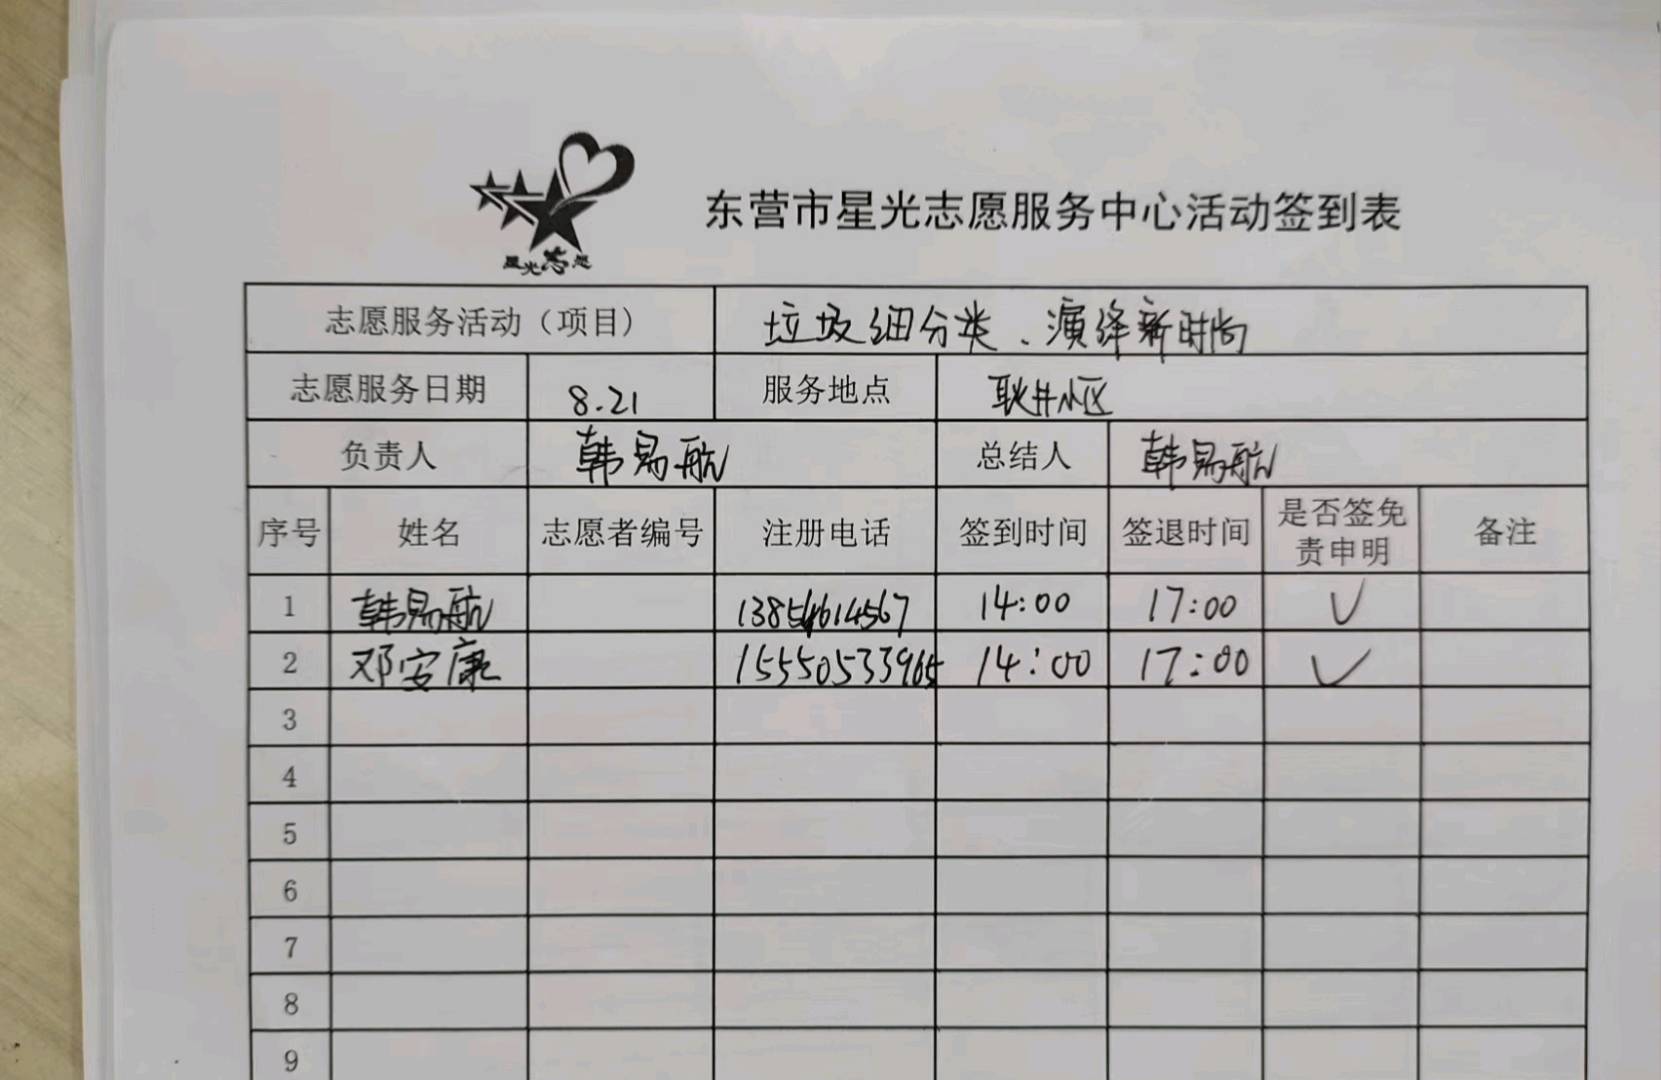 星光志愿
东营市星光志愿服务中心活动签到表
志愿服务活动（项目） 垃圾细分类、演绎新时尚
志愿服务日期 8.21 服务地点 耿井小区
负责人 韩易航 总结人 韩易航
序号 姓名 志愿者编号 注册电话 签到时间 签退时间 是否签免责申明 备注
1 韩易航 13854614567 14:00 17:00 √
2 邓安康 15550533965 14:00 17:00 √
3
4
5
6
7
8
9